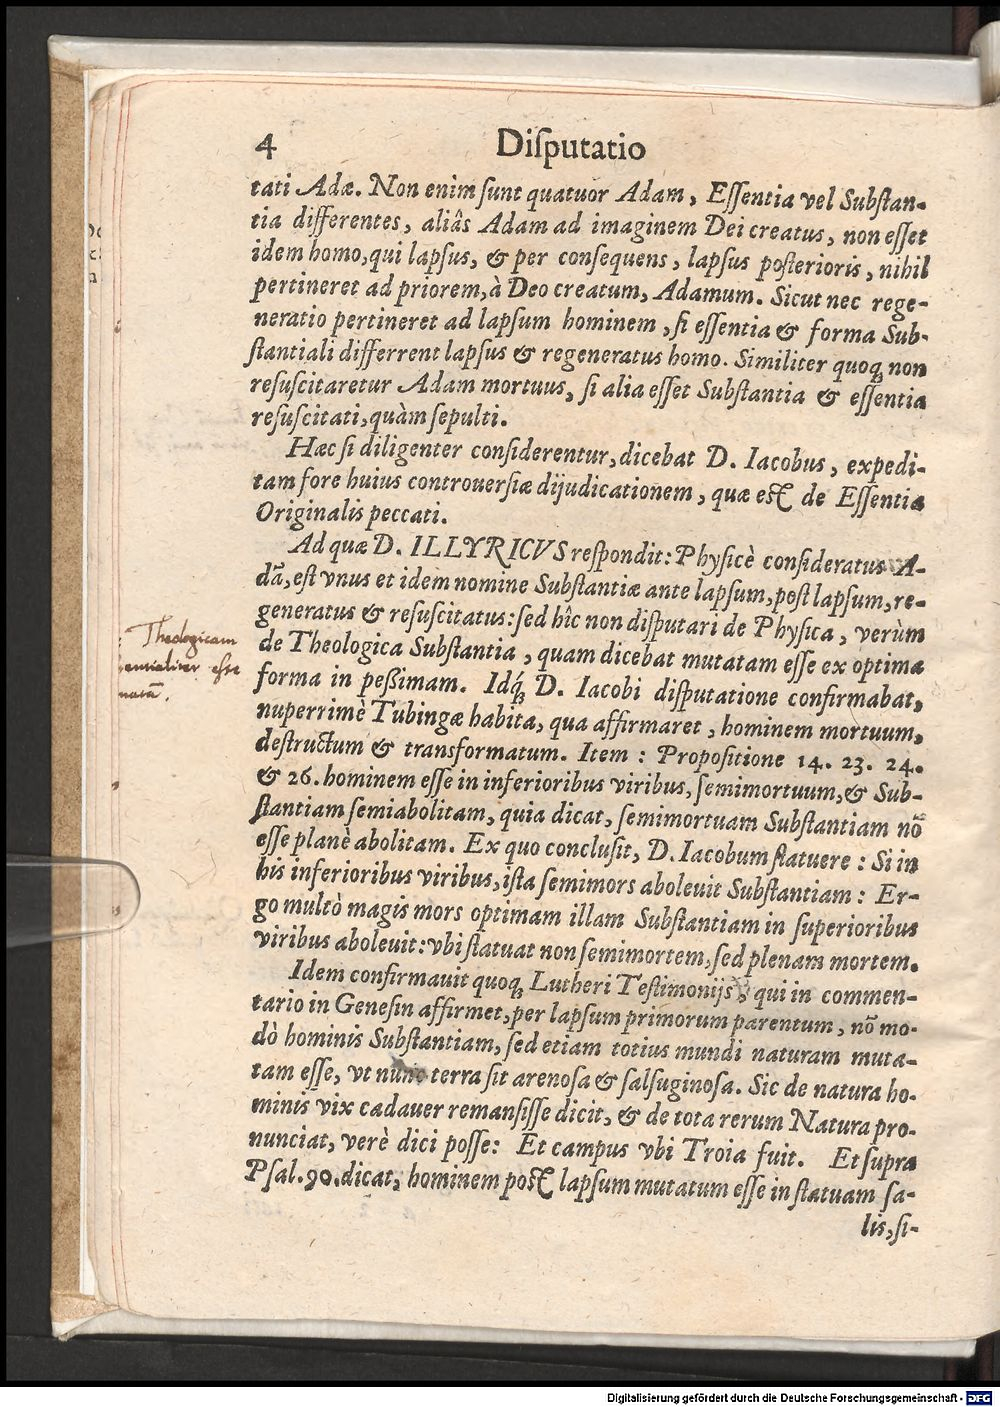 4 Diſputatio
tati Adæ. Non enim ſunt quatuor Adam, Eſſentia vel Subſtan-
tia differentes, aliâs Adam ad imaginem Dei creatus, non eſſet
idem homo, qui lapſus, & per conſequens, lapſus poſterioris, nihil
pertineret ad priorem, à Deo creatum, Adamum. Sicut nec rege-
neratio pertineret ad lapſum hominem, ſi eſſentia & forma Sub-
ſtantiali differrent lapſus & regeneratus homo. Similiter quoq; non
reſuſcitaretur Adam mortuus, ſi alia eſſet Subſtantia & eſſentia
reſuſcitati, quàm ſepulti.
Hæc ſi diligenter conſiderentur, dicebat D. Iacobus, expedi-
tam fore huius controuerſiæ dijudicationem, quæ eſt de Eſſentia
Originalis peccati.
Ad quæ D. ILLYRICVS reſpondit: Phyſicè conſideratus A-
dā, eſt vnus et idem nomine Subſtantiæ ante lapſum, poſt lapſum, re-
generatus & reſuſcitatus: ſed hîc non diſputari de Phyſica, verùm
de Theologica Subſtantia, quam dicebat mutatam eſſe ex optima
forma in peßimam. Idq́; D. Iacobi diſputatione confirmabat,
nuperrimè Tubingæ habita, qua affirmaret, hominem mortuum,
deſtructum & transformatum. Item: Propoſitione 14. 23. 24.
& 26. hominem eſſe in inferioribus viribus, ſemimortuum, & Sub-
ſtantiam ſemiabolitam, quia dicat, ſemimortuam Subſtantiam nō
eſſe planè abolitam. Ex quo concluſit, D. Iacobum ſtatuere: Si in
his inferioribus viribus, iſta ſemimors aboleuit Subſtantiam: Er-
go multò magis mors optimam illam Subſtantiam in ſuperioribus
viribus aboleuit: vbi ſtatuat non ſemimortem, ſed plenam mortem.
Idem confirmauit quoq; Lutheri Teſtimonijs, qui in commen-
tario in Geneſin affirmet, per lapſum primorum parentum, nō mo-
dò hominis Subſtantiam, ſed etiam totius mundi naturam muta-
tam eſſe, vt nunc terra ſit arenoſa & ſalſuginoſa. Sic de natura ho-
minis vix cadauer remanſiſſe dicit, & de tota rerum Natura pro-
nunciat, verè dici poſſe: Et campus vbi Troia fuit. Et ſupra
Pſal. 90. dicat, hominem poſt lapſum mutatum eſſe in ſtatuam ſa-
lis, ſi-
Theologicam
Digitalisierung gefördert durch die Deutsche Forschungsgemeinschaft - DFG